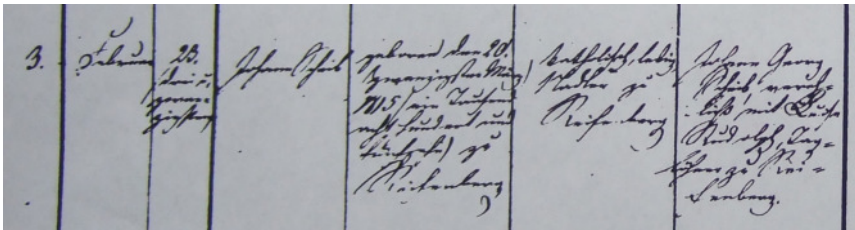 3.
Februar
23.
drei u.
zwan-
zigsten
Johann Scheib
geboren den 20.
zwanzigsten März
1815 (ein Tausend
acht hundert und
fünfzehn) zu
Reifenberg
katholisch, ledig
Nadler zu
Reifenberg
Johann Georg
Scheib, verehe-
licht mit
Rudolph, Tag-
löhner zu Rei-
fenberg.